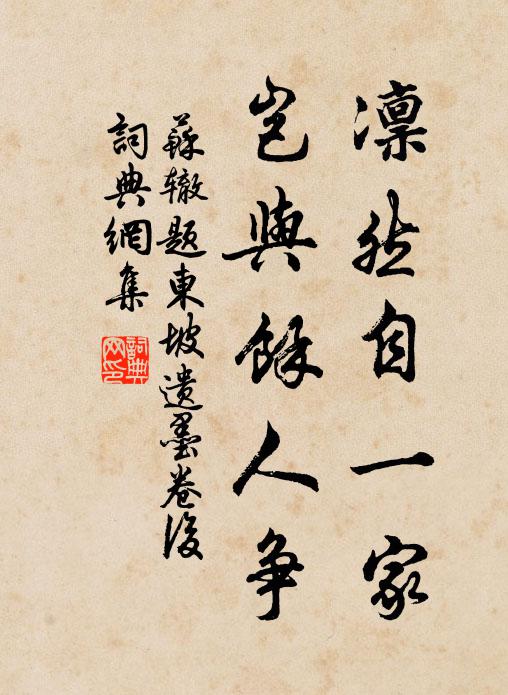 凛然自一家
豈與餘人争
蘇辙題東坡遺墨卷後
詞典網集
詞典网印